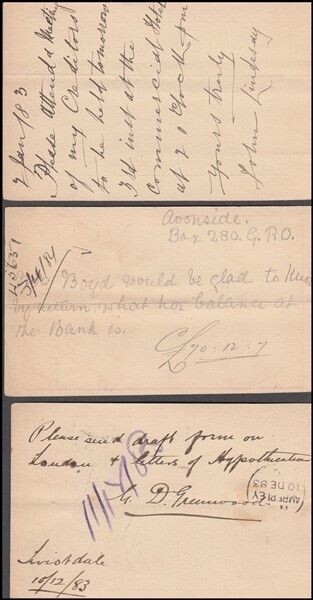 2 Jan / 83
Please Attend a Meeting
of my Creditors
to be held tomorrow
3rd inst at the
Commercial Hotel
at 2 o clock pm
Yours truly
John Lindsay
Avonside.
Box 280. G.P.O.
Boyd would be glad to know
by return what her balance at
the Bank is.
£70 : 12 . 7
Please send draft form on
London & letters of Hypothecation
G. D. Greenwood
AMBERLEY
10 DE 83
Teviotdale
10/12/83